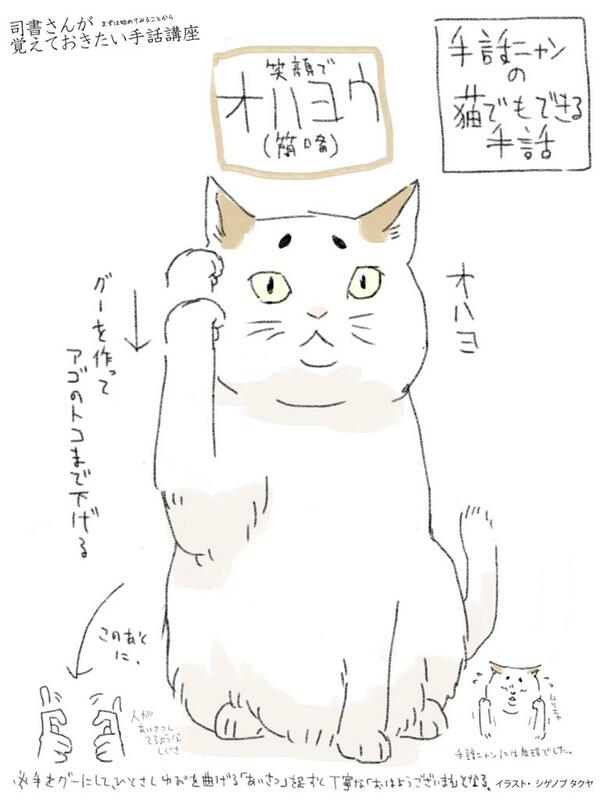 司書さんが まずは始めてみることから
覚えておきたい手話講座
笑顔で
オハヨウ
(簡略)
手話ニャン
の
猫でもできる
手話
オハヨ
グーを作って
アゴのトコまで下げる
このあと
に、
人が
あいさつし
てるような
しぐさ
ムリニャ
手話ニャンには無理でした。
※手をグーにして、ひとさしゆびを曲げる「あいさつ」を足すと丁寧な「おはようございます」となる。イラスト・シゲノブ タクヤ